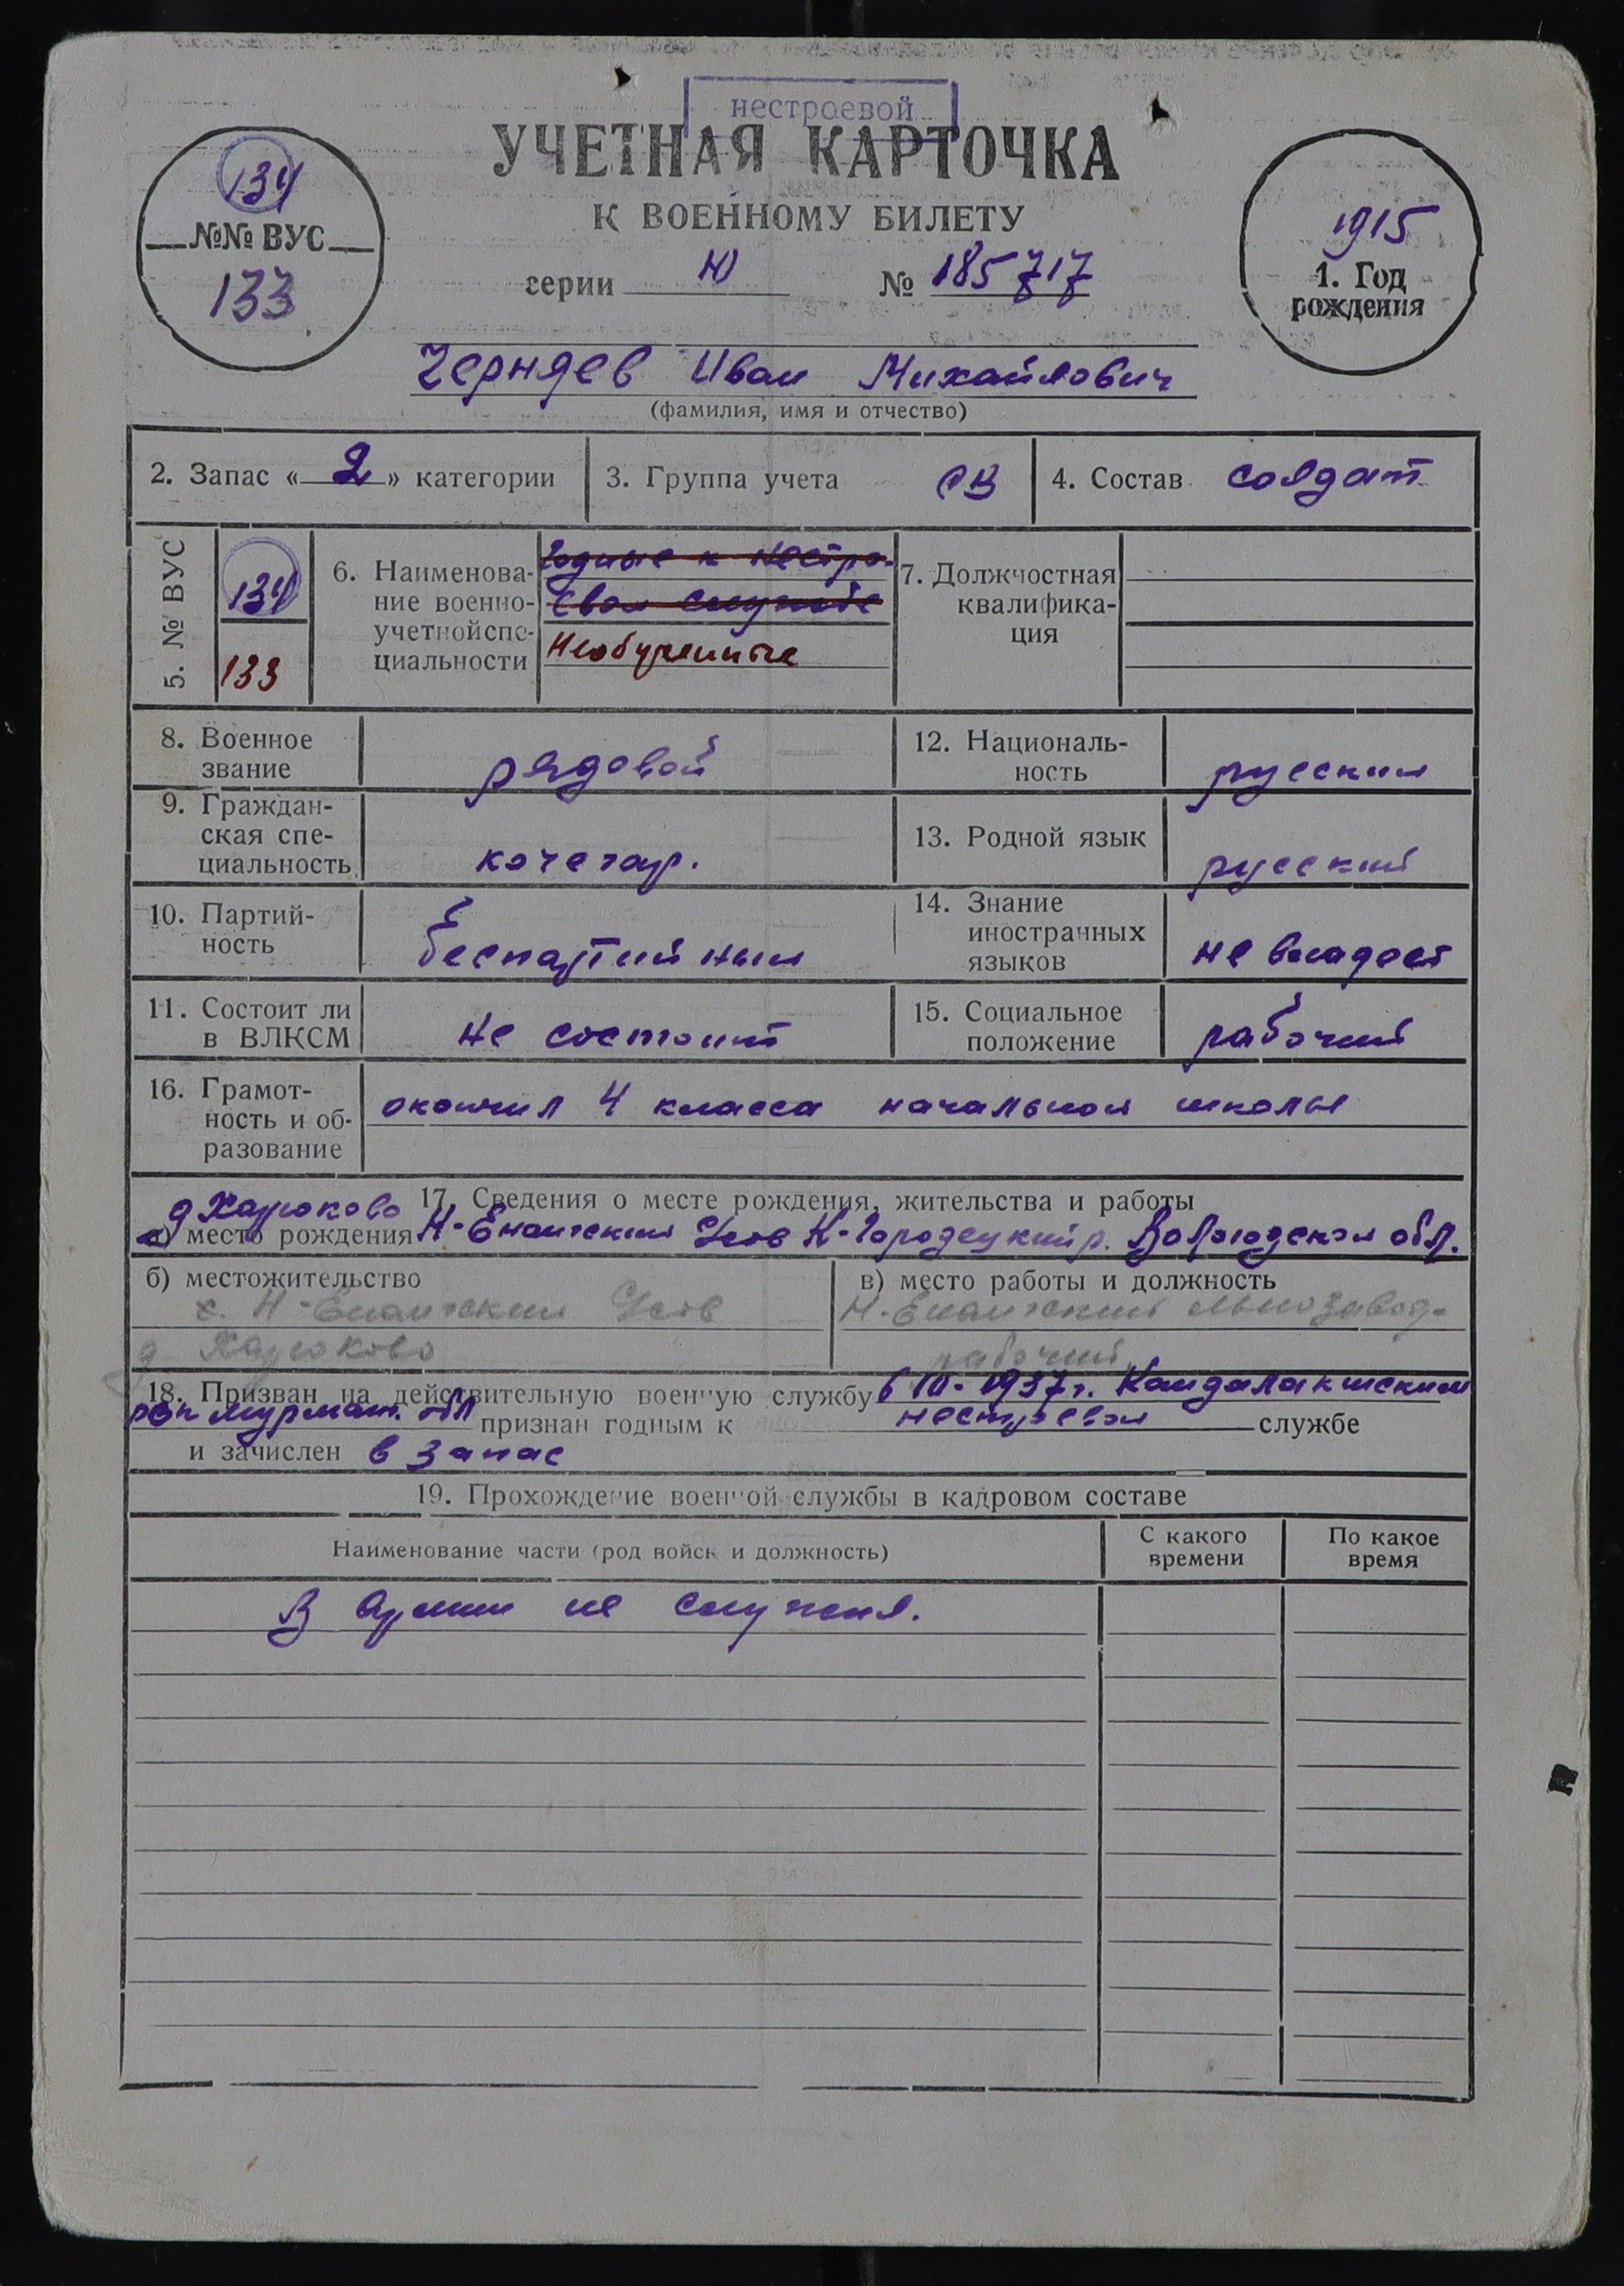 нестроевой
УЧЕТНАЯ КАРТОЧКА
К ВОЕННОМУ БИЛЕТУ
серии Ю № 185717
134
№№ ВУС
133
1915
1. Год
рождения
Черняев Иван Михайлович
(фамилия, имя и отчество)
2. Запас « 2 » категории
3. Группа учета СВ
4. Состав солдат
5. № ВУС
134
133
6. Наименова-
ние военно-
учетной спе-
циальности
Годные к нестро-
евой службе
Необученные
7. Должностная
квалифика-
ция
8. Военное
звание
рядовой
12. Националь-
ность
русский
9. Граждан-
ская спе-
циальность
кочегар.
13. Родной язык
русский
10. Партий-
ность
беспартийный
14. Знание
иностранных
языков
не владеет
11. Состоит ли
в ВЛКСМ
не состоит
15. Социальное
положение
рабочий
16. Грамот-
ность и об-
разование
окончил 4 класса начальной школы
17. Сведения о месте рождения, жительства и работы
д Харюково
а) место рождения Н-Енангский К-Городецкий р. Вологодской обл.
б) местожительство
с. Н-Енангский
д Харюково
в) место работы и должность
Н-Енангский льнозавод-
рабочий
18. Призван на действительную военную службу в 1937 г. Кандалакшским
рвк Мурман. обл признан годным к нестроевой службе
и зачислен в запас
19. Прохождение военной службы в кадровом составе
Наименование части (род войск и должность)
С какого
времени
По какое
время
В армии не служил.